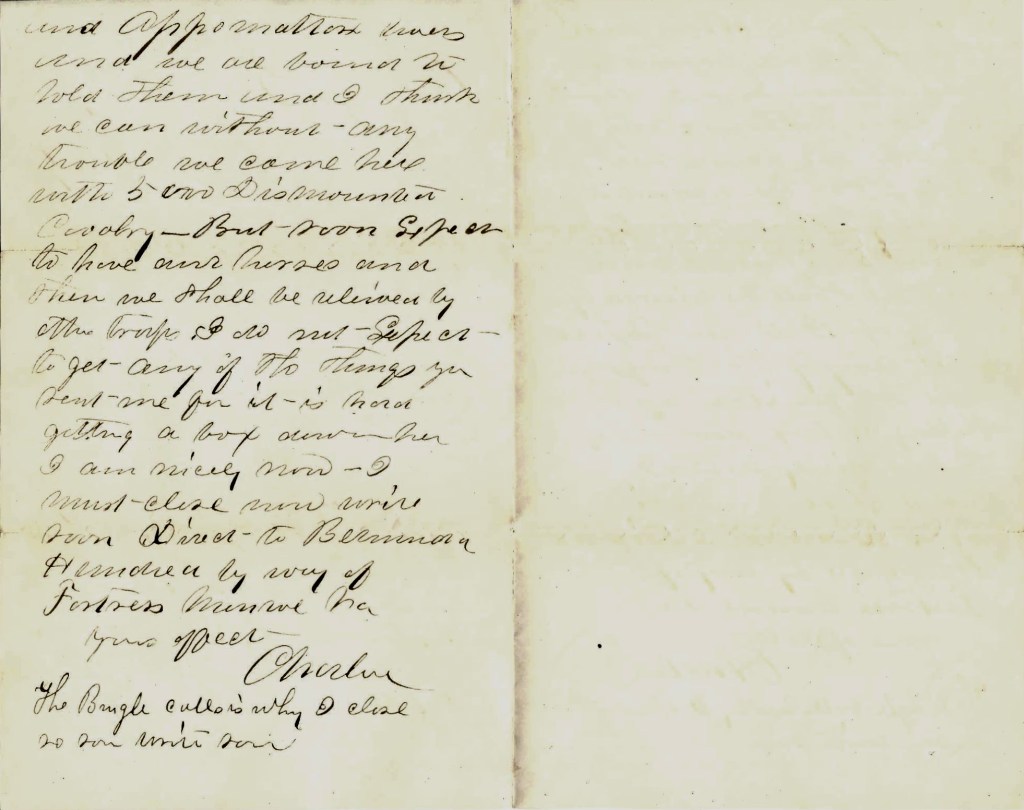 and Appomattox rivers
and we are bound to
hold them and I think
we can without any
trouble we came here
with 5000 Dismounted
Cavalry - But soon Expect
to have our horses and
then we shall be relieved by
other troops I do not Expect
to get any of the things you
sent me for it is hard
getting a box down her
I am nicely now - I
must close now write
soon Direct to Bermuda
Hundred by way of
Fortress Monroe Va
Yours affect
Charlie
The Bugle calls is why I close
so soon write soon